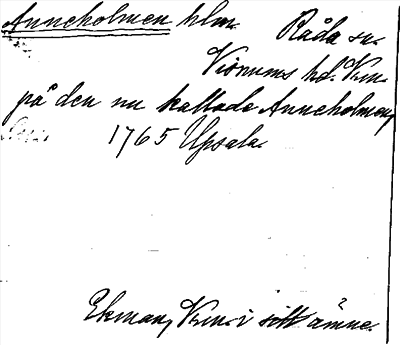 Anneholmen hlm Råda sn.
Kinnums hd. Vm.
på den nu kallade Anneholmen,
1765 Upsala.
Ekman, i sitt ämne.